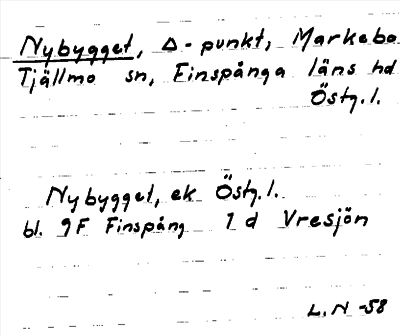 Nybygget, Δ-punkt, Markebo
Tjällmo sn, Finspånga läns hd
Östg.l.
Nybygget, ek Östg.l.
bl. 9F Finspång 1 d Vresjön
L.N -58